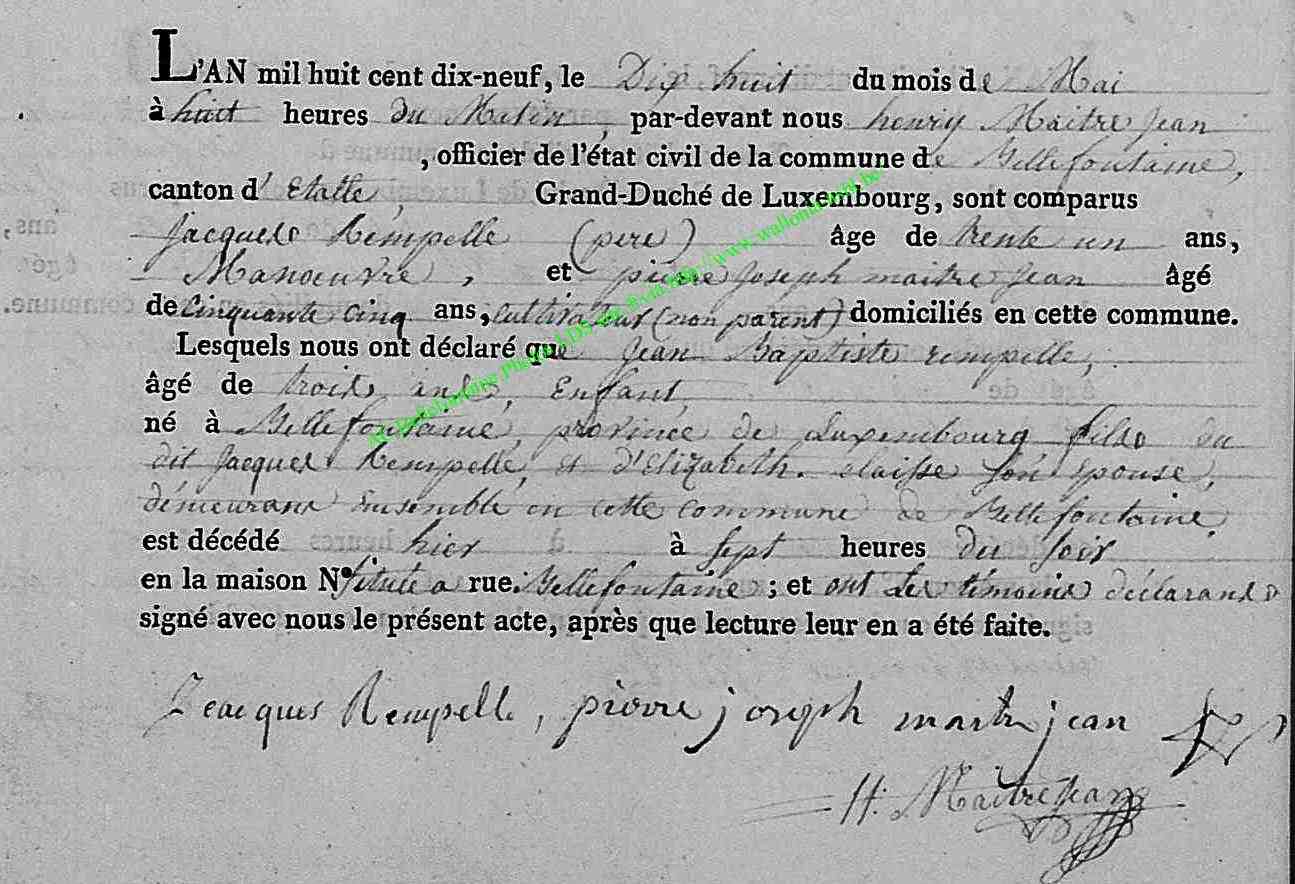 L'AN mil huit cent dix-neuf, le Dix huit du mois de Mai
à huit heures du Matin, par-devant nous henry Maitre Jean
, officier de l'état civil de la commune de Bellefontaine,
canton d' Etalle, Grand-Duché de Luxembourg, sont comparus
Jacques Rempelle (pere) âge de trente un ans,
Manoeuvre, et pierre Joseph maitre Jean âgé
de Cinquante cinq ans, cultivateur (non parent) domiciliés en cette commune.
Lesquels nous ont déclaré que Jean Baptiste rempelle,
âgé de trois ans, Enfant
né à Bellefontaine, province de Luxembourg fils du
dit Jacques Rempelle, et d'Elizabeth. claisse son epouse,
demeurant Ensemble en cette commune de Bellefontaine.
est décédé hier à sept heures du soir
en la maison No située a rue. Bellefontaine ; et ont les témoins déclarans
signé avec nous le présent acte, après que lecture leur en a été faite.
Jeacques Rempelle, pierre joseph maitre jean
H: Maitrejean
http://www.wallonia-asbl.be